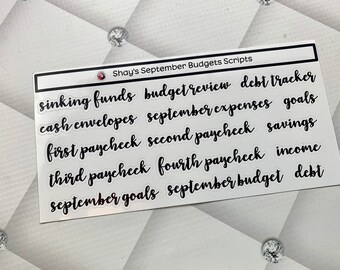 Shay's September Budgets Scripts
sinking funds budget review debt tracker
cash envelopes september expenses goals
first paycheck second paycheck savings
third paycheck fourth paycheck income
september goals september budget debt